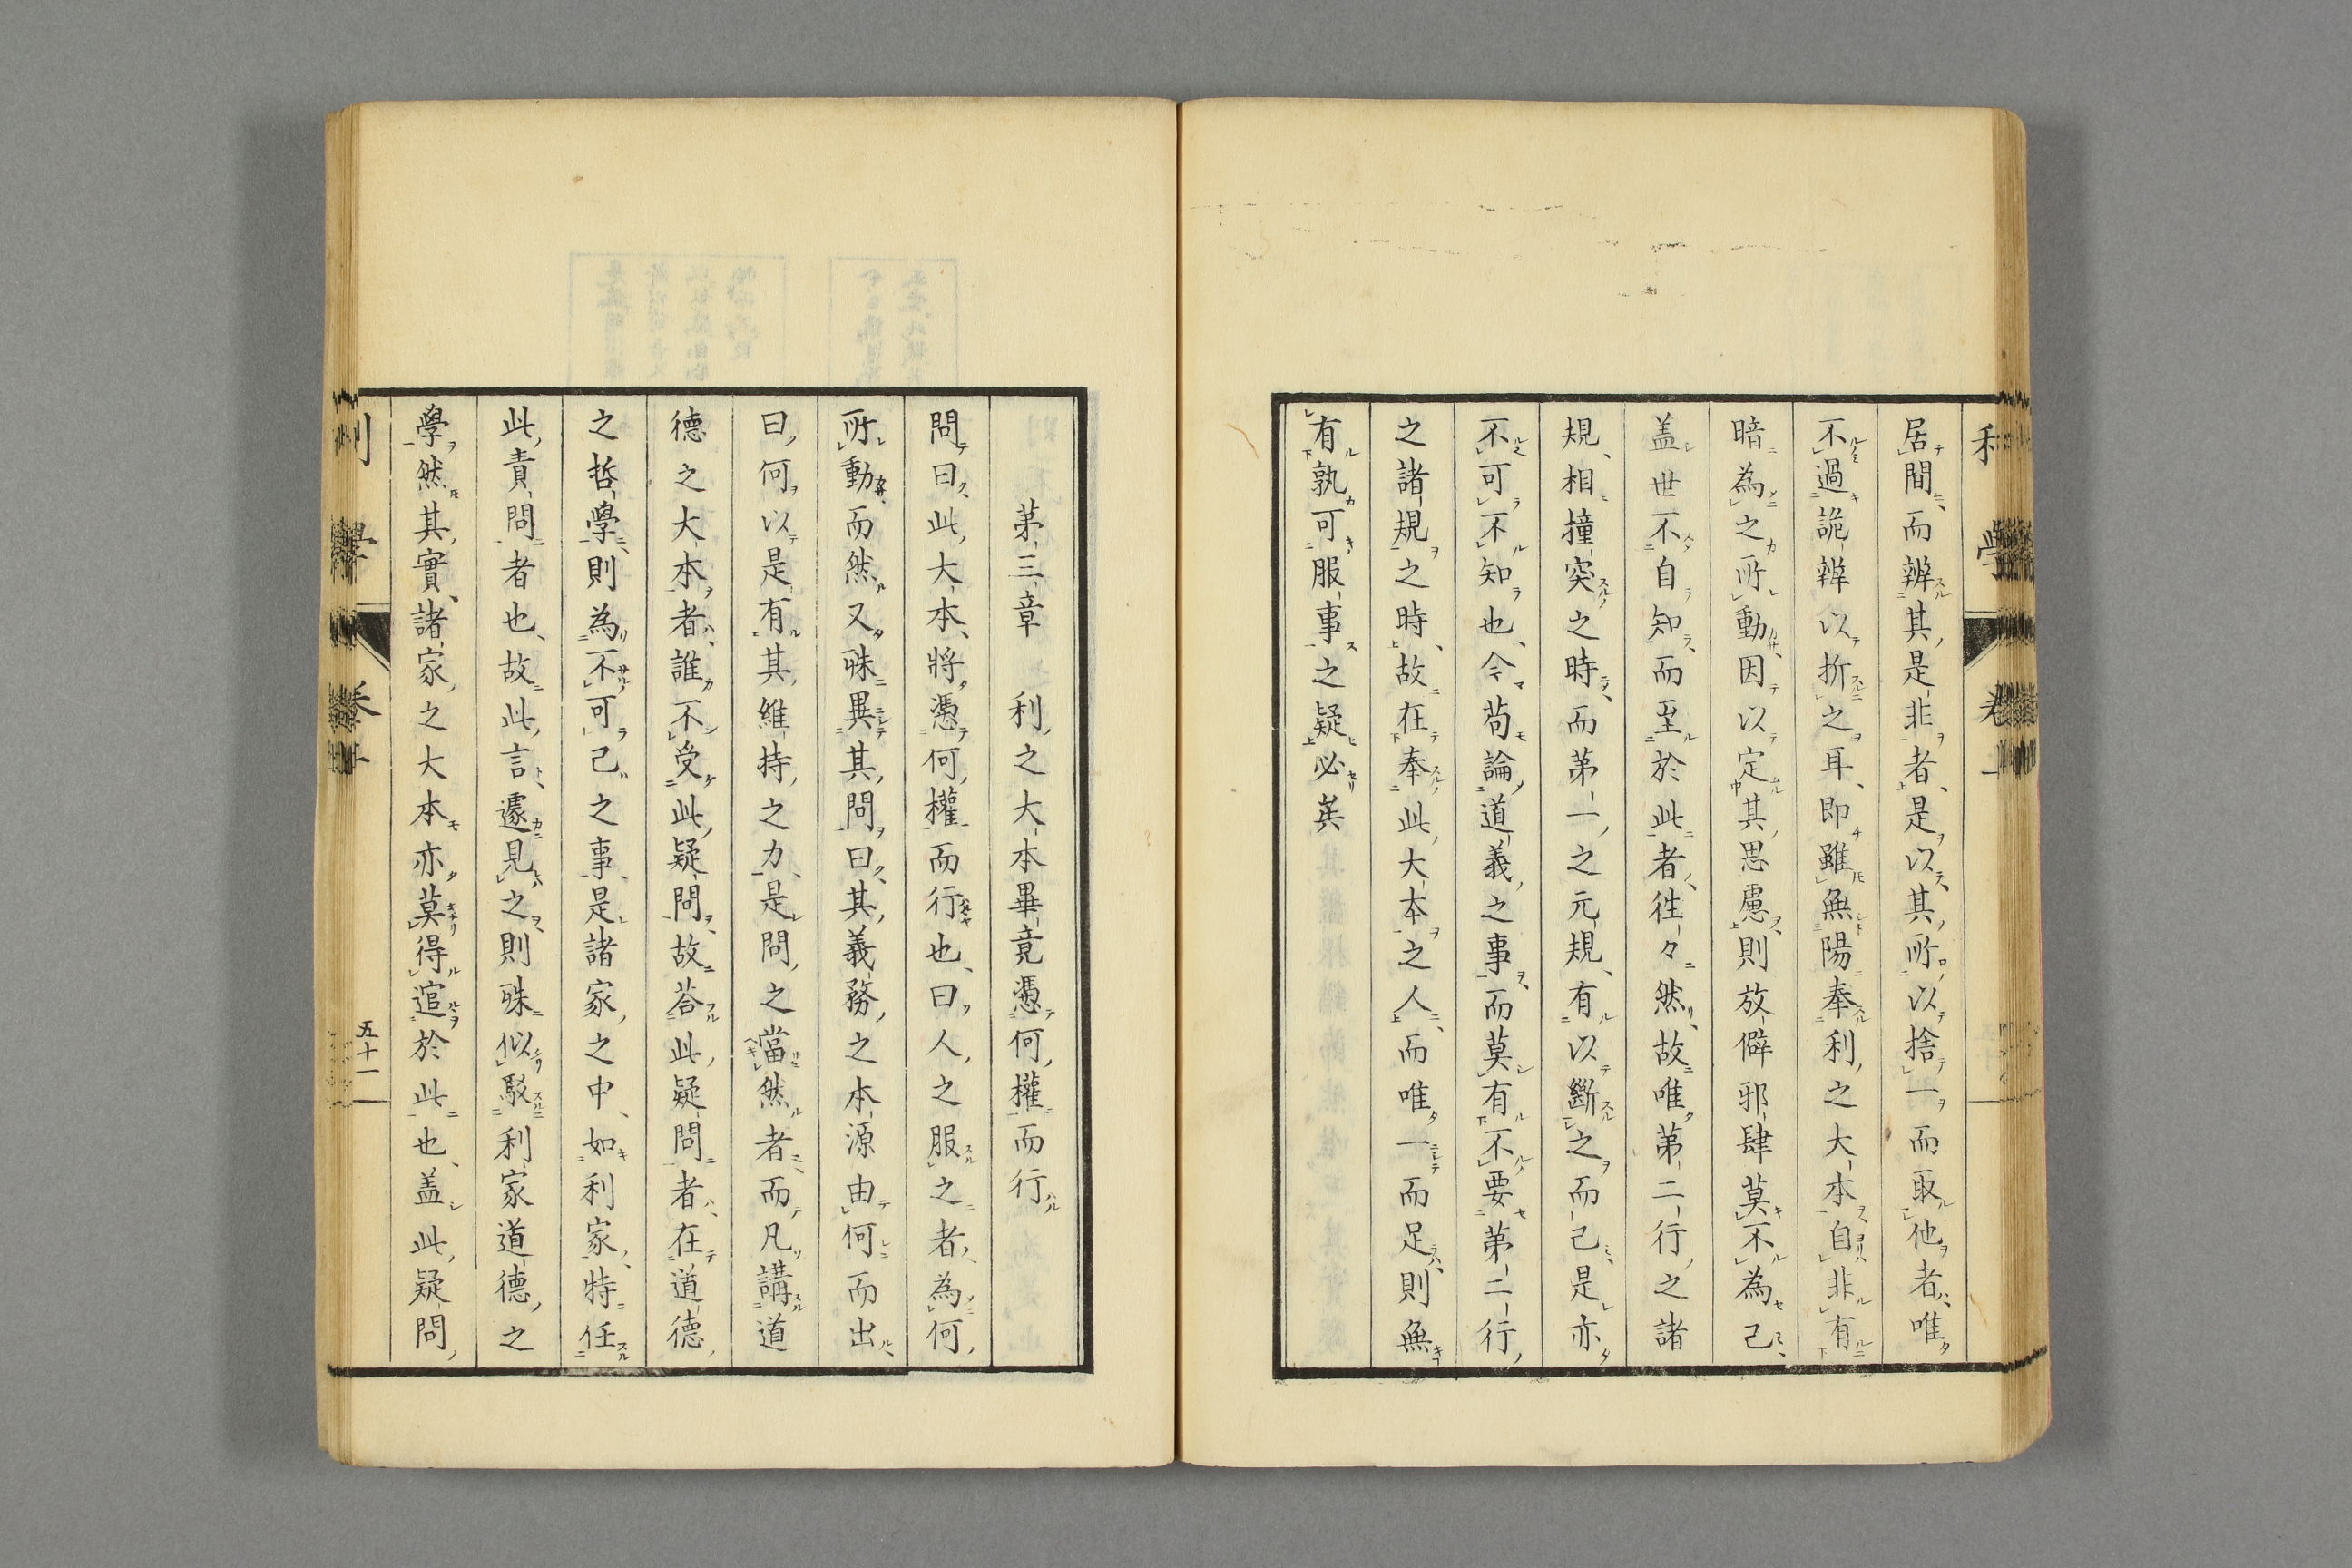 居間而辨其是非者是以其所以捨一而取他者唯
不過詭辯以折之耳即雖無陽奉利之大本自非有
暗為之所動因以定其思慮則放僻邪肆莫不為己
盖世不自知而至於此者徃々然故唯第二行之諸
規相撞突之時而第一之元規有以斷之而己是亦
不可不知也今苟論道義之事而莫有不要第二行
之諸規之時故在奉此大本之人而唯一而足則無
有孰可服事之疑必矣
第三章 利之大本畢竟憑何權而行
問曰此大本將憑何權而行也曰人之服之者為何
所動而然又殊異其問曰其義務之本源由何而出
曰何以是有其維持之力是問之當然者而凡講道
德之大本者誰不受此疑問故荅此疑問者在道德
之哲學則為不可己之事是諸家之中如利家特任
此責問者也故此言遽見之則殊似駁利家道德之
學然其實諸家之大本亦莫得逭於此也盖此疑問
利學 卷上
五十一